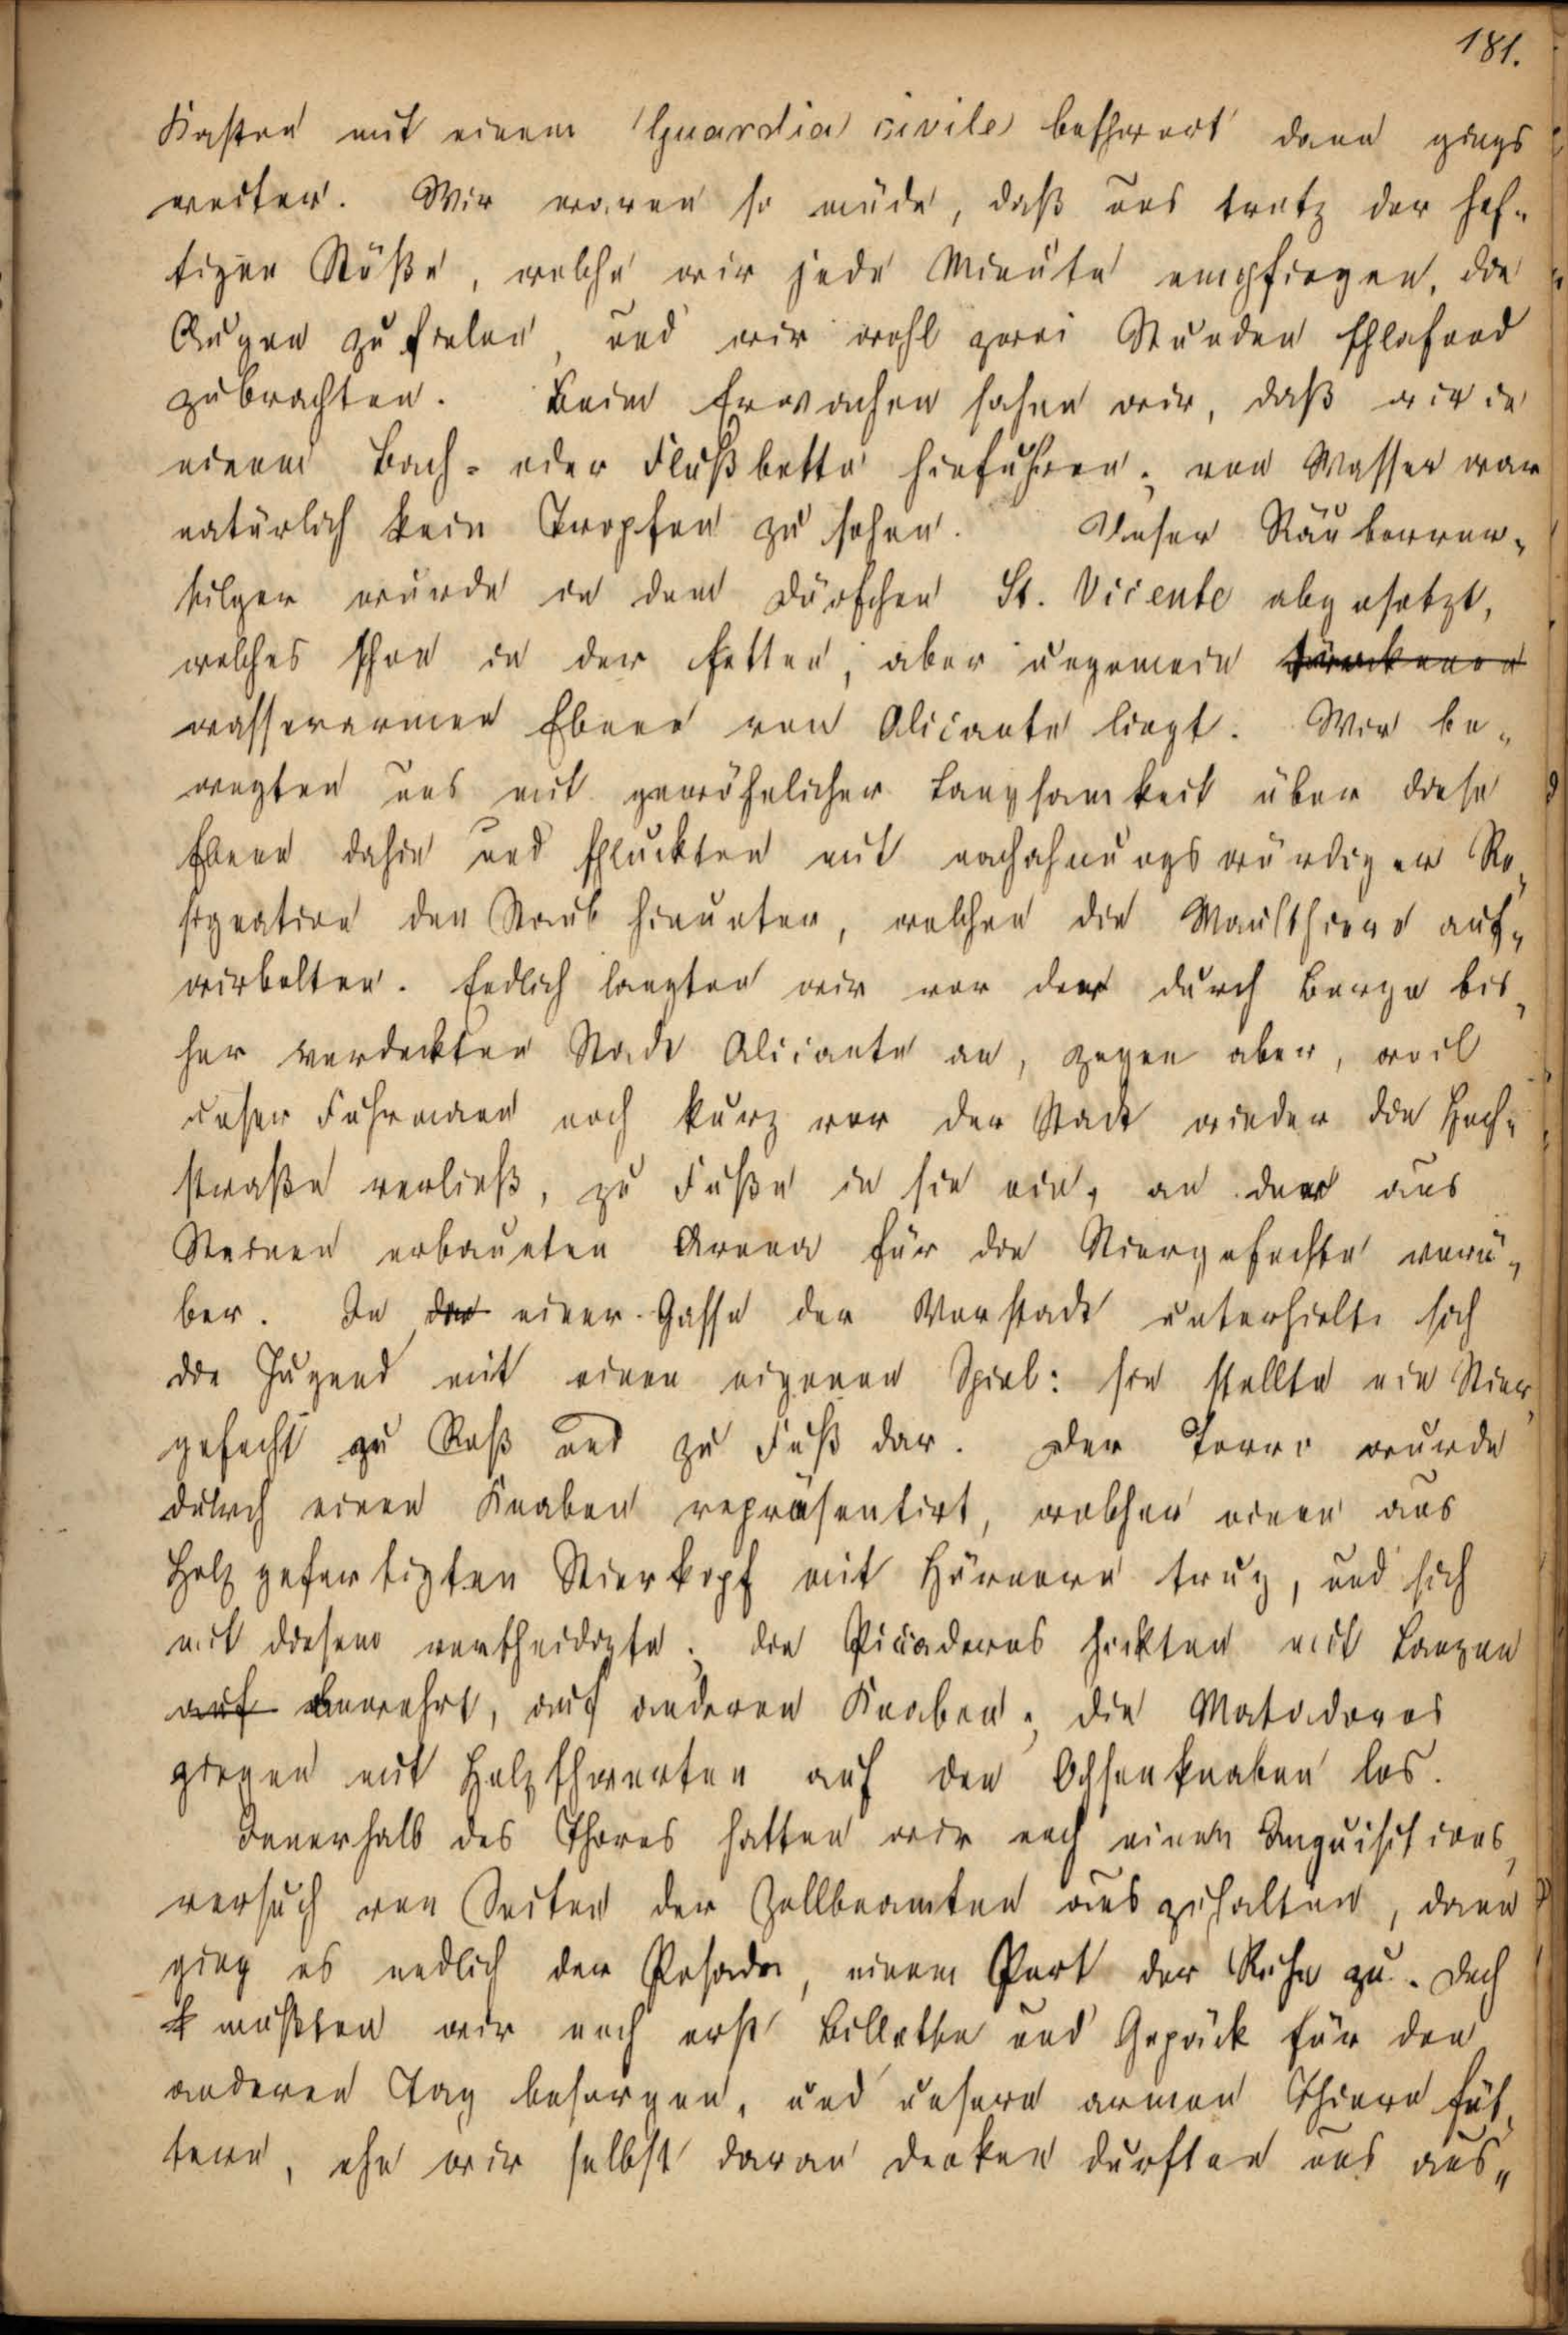 181.
Kasten mit einem Guardia civile beschwert dann gings
weiter. Wir waren so müde, daß uns trotz der hef-
tigen Stöße, welche wir jede Minute empfingen, die
Augen zufielen, und wir wohl zwei Stunden schlafend
zubrachten. Beim Erwachen sahen wir, daß wir in
einem Bach- oder Flußbette hinfuhren; von Wasser war
natürlich kein Tropfen zu sehen. Unser Räuberver-
tilger wurde in dem Dörfchen St. Vicente abgesetzt,
welches schon in der fetten, aber ungemein trockenen
wasserarmen Ebene von Alicante liegt. Wir be-
wegten uns mit gewöhnlicher Langsamkeit über diese
Ebene dahin und schluckten mit nachahmungswürdiger Re-
signation den Staub hinunter, welchen die Maulthiere auf-
wirbelten. Endlich langten wir vor der durch Berge bis-
her verdeckten Stadt Alicante an, zogen aber, weil
unser Fuhrmann noch kurz vor der Stadt wieder die Hoch-
straße verließ, zu Fuße in sie ein, an der aus
Steinen erbauten Arena für die Stiergefechte vorü-
ber. In der einer Gasse der Vorstadt unterhielt sich
die Jugend mit einen eigenen Spiel: sie stellte ein Stier-
gefecht zu Roß und zu Fuß dar. Der Torro wurde
durch einen Knaben repräsentirt, welcher einen aus
Holz gefertigten Stierkopf mit Hörnern trug, und sich
mit diesem vertheidigte; die Picadores hockten mit Lanzen
auf bewehrt, auf anderen Knaben; die Matadores
gingen mit Holzschwerten auf den Ochsenknaben los.
Innerhalb des Thores hatten wir noch einen Inquisitions-
versuch von Seiten der Zollbeamten auszuhalten, dann
ging es endlich der Posada, einem Port der Ruhe zu. Doch
mußten wir noch erst Billette und Gepäck für den
anderen Tag besorgen, und unsere armen Thiere füt-
tern, ehe wir selbst daran denken durften uns aus-